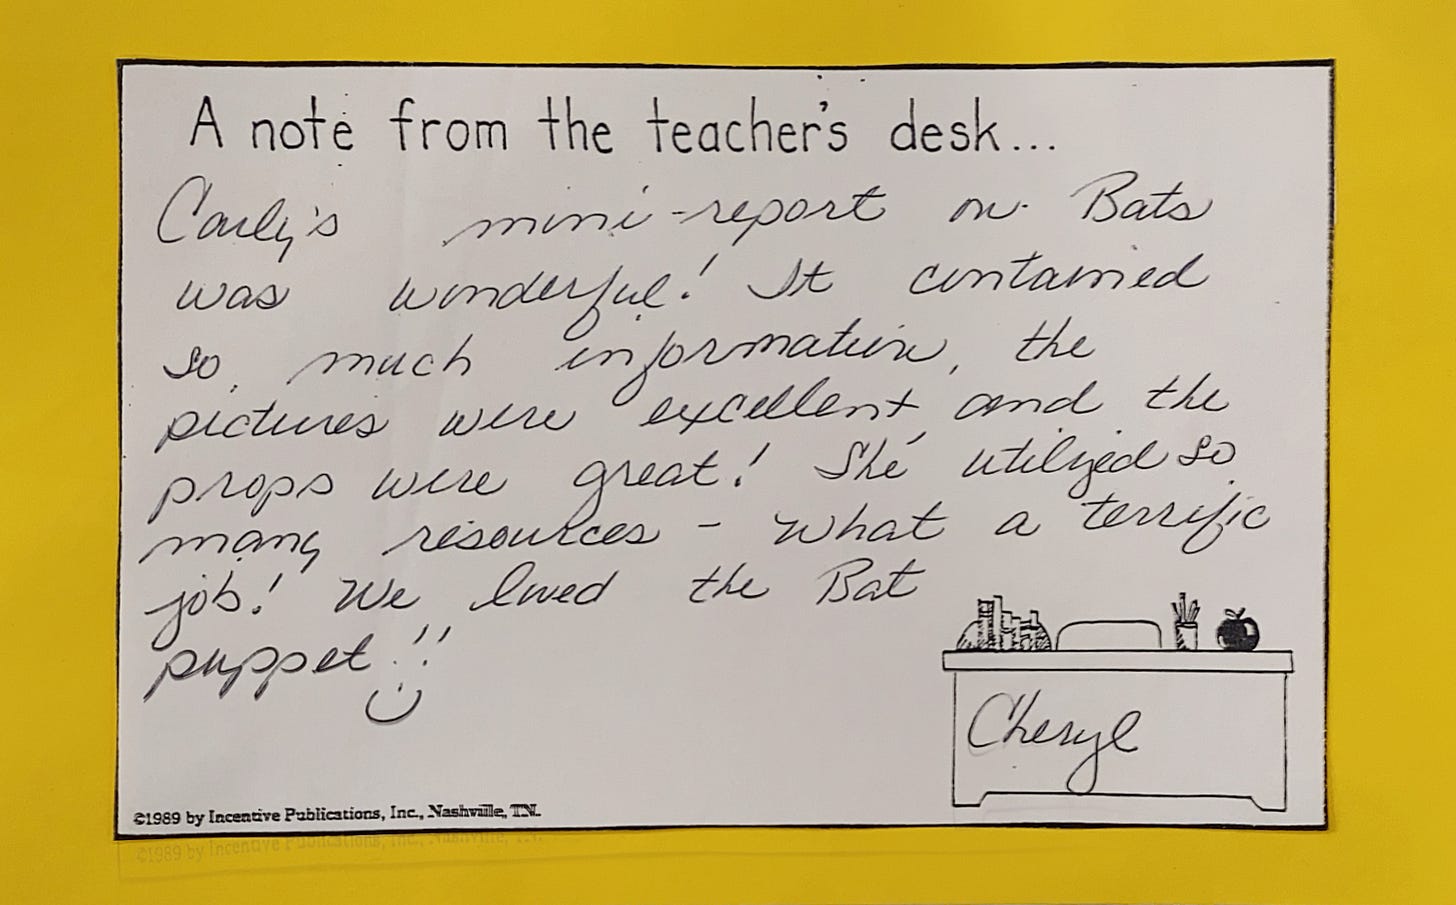 A note from the teacher's desk...
Carly's mini-report on Bats
was wonderful! It contained
so much information, the
pictures were excellent and the
props were great! She utilized so
many resources - what a terrific
job! We loved the Bat
puppet!!
Cheryl
©1989 by Incentive Publications, Inc., Nashville, TN.
©1989 by Incentive Publications, Inc., Nashville, TN.